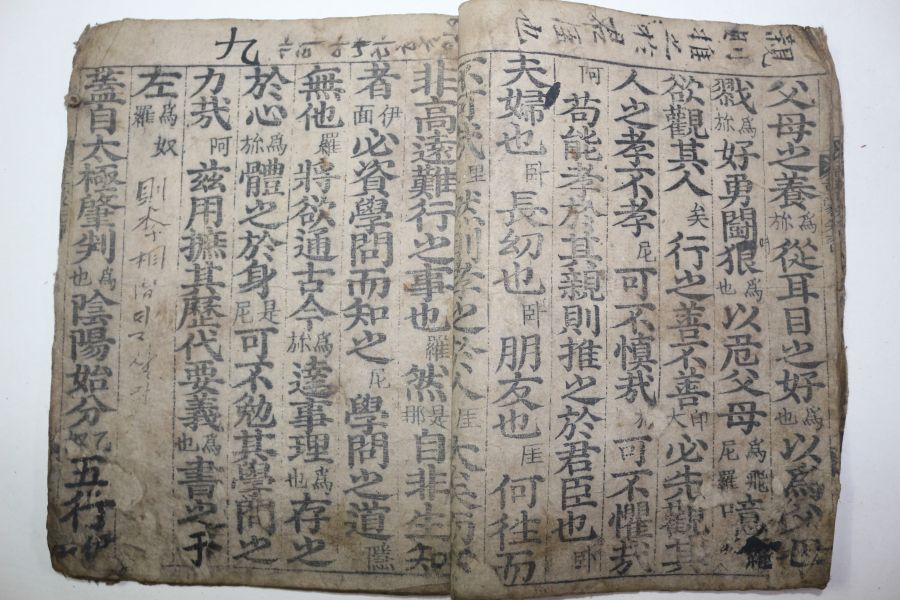 父母之養為旀從耳目之好為也以為父
戮為旀好勇鬪狠為也以危父母為飛尼羅噫
欲觀其人矣行之善不善大印必先觀其
人之孝不孝尼可不慎哉可不懼哉
阿苟能孝於其親則推之於君臣也卧
夫婦也卧長幼也卧朋友也厓何往而
不可哉里然則孝之於人厓大矣而
九
非高遠難行之事也羅然是那自非生知
者伊面必資學問而知之尼學問之道隱
無他羅將欲通古今為旀達事理為也存之
於心為旀體之於身是尼可不勉其學問之
力哉阿茲用摭其歷代要義為也書之于
左為奴羅
蓋自太極肇判為也陰陽始分五行伊